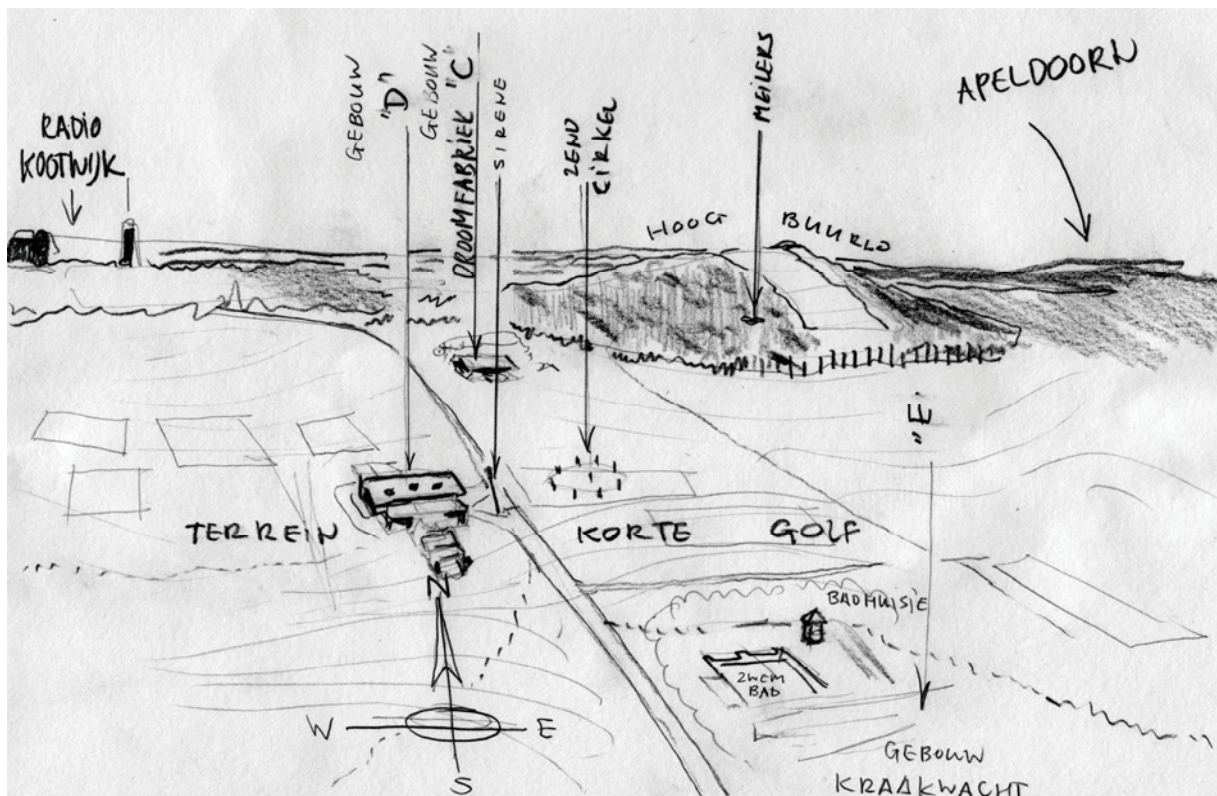 RADIO
KOOTWIJK
GEBOUW
"D"
GEBOUW
"C"
DROOMFABRIEK
SIRENE
ZEND
CIRKEL
MEILERS
APELDOORN
HOOG BUURLO
"E"
TERREIN KORTE GOLF
BADHUISJE
ZWEM
BAD
N
W E
S
GEBOUW
KRAAKWACHT